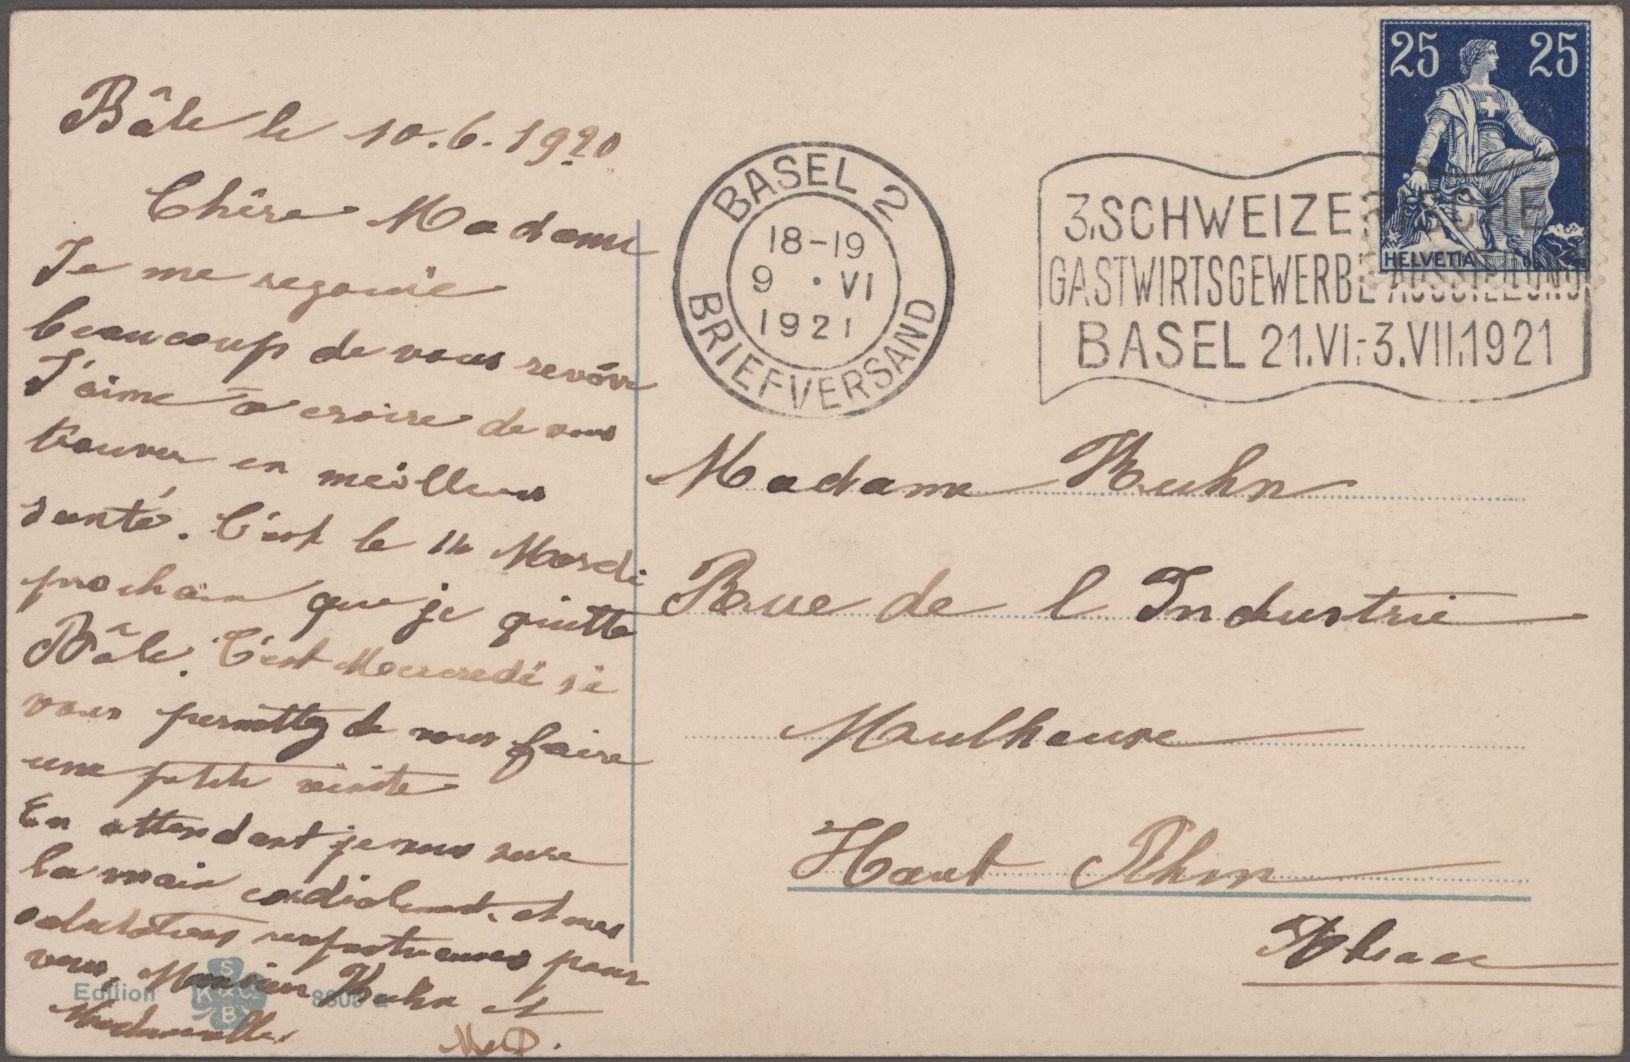 Bâle le 10.6.1920
Chère Madame
Je me regouie
beaucoup de vous revoir
J'aime à croire de vous
trouver en meilleurs
santé. C'est le 14 Mardi
prochain que je quitte
Bâle. C'est Mercredi si
vous permettez de vous faire
une petite visite
En attendant je vous serre
la main cordialement. et mes
salutations respectueuses pour
vous, Monsieur Kuhn et
Mademoiselle.
M.D.
Edition
S
K & Co
B
BASEL 2
18-19
9 · VI
1921
BRIEFVERSAND
3. SCHWEIZERISCHE
GASTWIRTSGEWERBE AUSSTELLUNG
BASEL 21.VI.-3.VII.1921
25 25
HELVETIA
Madame Kuhn
Rue de l Industrie
Mulhouse
Haut Rhin
Alsace